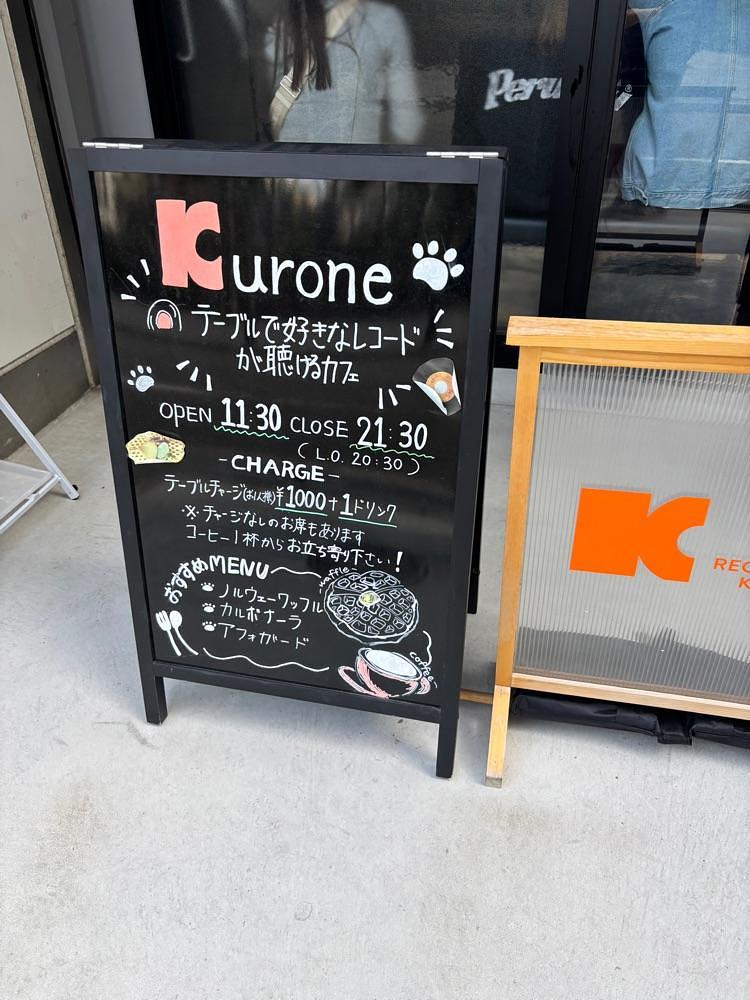 Peru
Kurone
テーブルで好きなレコード
が聴けるカフェ
OPEN 11:30 CLOSE 21:30
(L.O. 20:30)
-CHARGE-
テーブルチャージ(お1人様)¥1000+1ドリンク
※チャージなしのお席もあります
コーヒー1杯からお立ち寄り下さい!
おすすめMENU
ノルウェーワッフル
カルボナーラ
アフォガード
waffle
coffee
K
REC
K